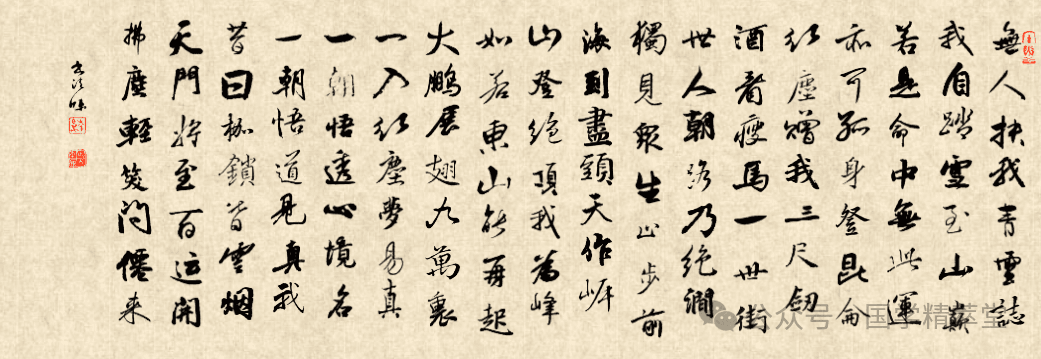 無人扶我青雲誌
我自踏雪至山巔
若是命中無此運
亦可孤身登昆侖
紅塵贈我三尺劍
酒看瘦馬一世街
世人朝路乃絕澗
獨見眾生止步前
海到盡頭天作岸
山登絕頂我為峰
如若東山能再起
大鵬展翅九萬裏
一入紅塵夢易真
一朝悟透心境名
一朝悟道見真我
昔日枷鎖皆雲烟
天門將至百運開
拂塵輕笑問僊來
公众号·国学精萃堂